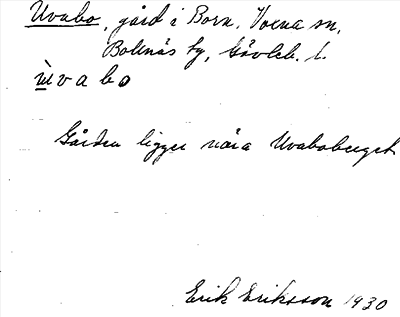 Uvabo, gård i Born, Voxna sn,
Bollnäs fg, Gävleb. l.
ùvabo
Gården ligger nära Uvaboberget
Erik Eriksson 1930